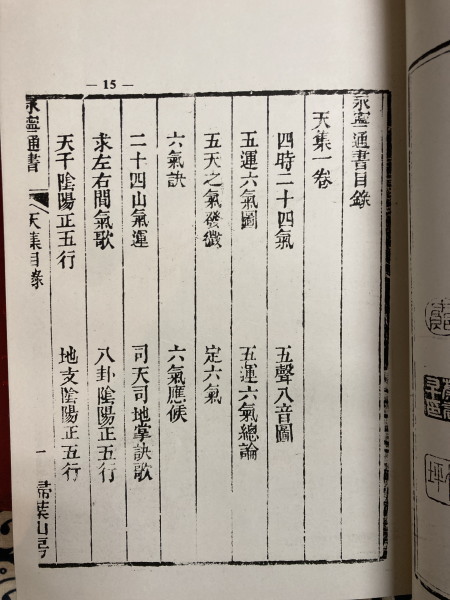 — 15 —
永寧通書目錄
天集一卷
四時二十四氣 五聲八音圖
五運六氣圖 五運六氣總論
五天之氣發微 定六氣
六氣訣 六氣應候
二十四山氣運 司天司地掌訣歌
求左右間氣歌 八卦陰陽正五行
天干陰陽正五行 地支陰陽正五行
永寧通書 天集目錄 一 掃葉山房